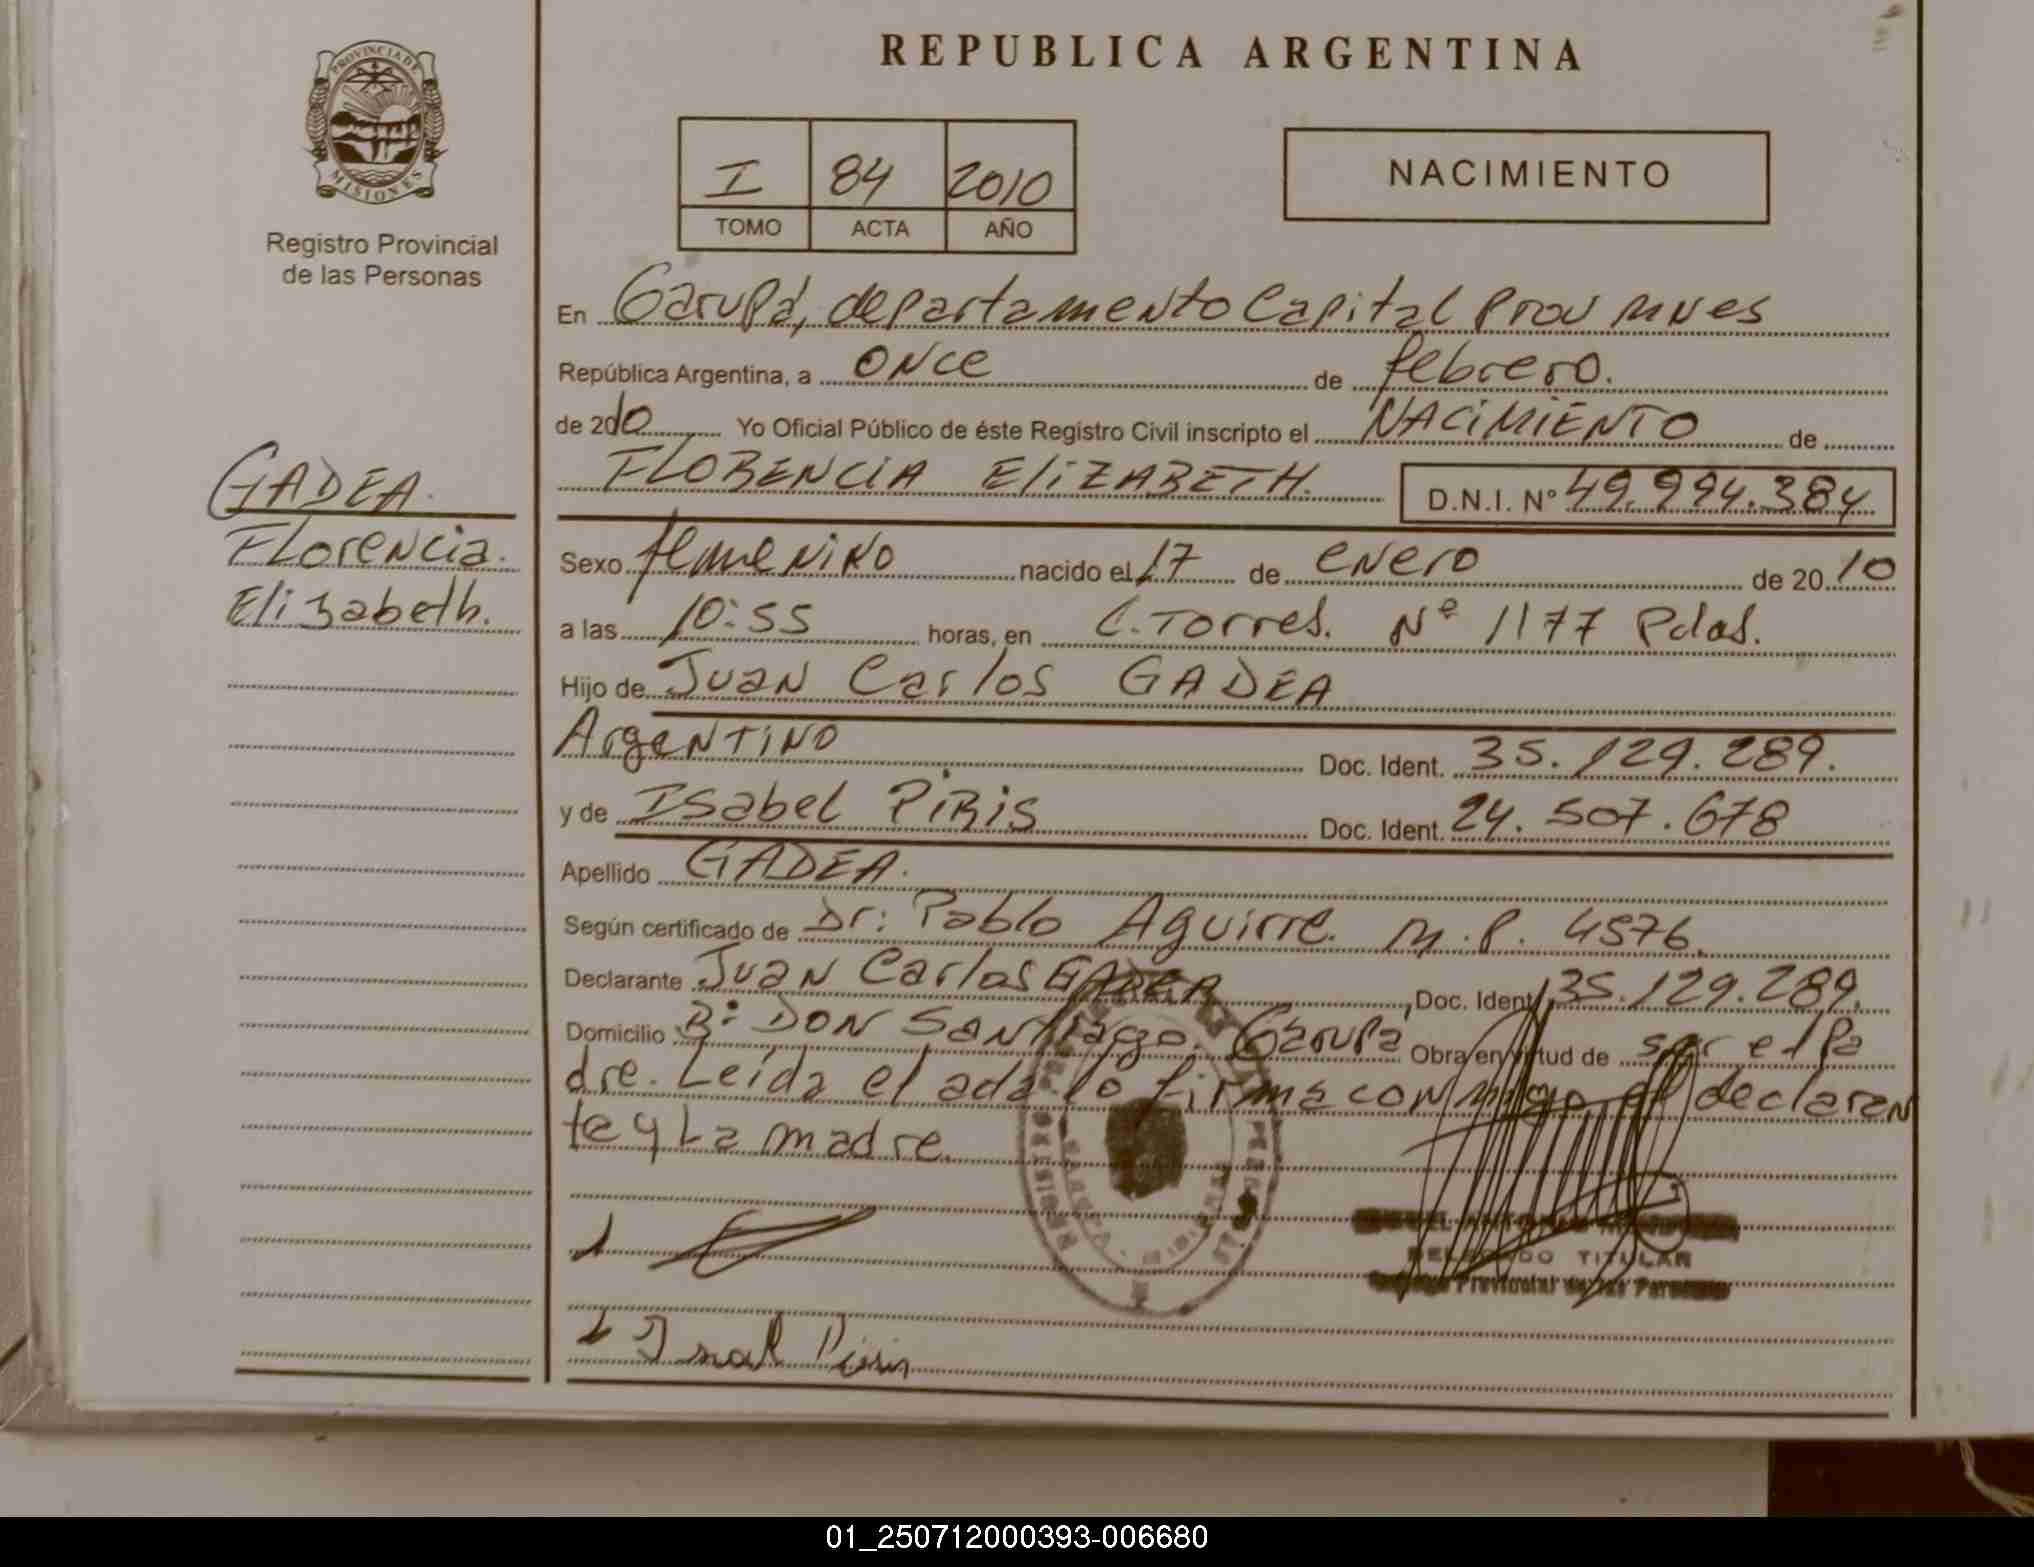 PROVINCIA DE
MISIONES
Registro Provincial
de las Personas
GADEA.
Florencia.
Elizabeth.
REPUBLICA ARGENTINA
I 84 2010
TOMO ACTA AÑO
NACIMIENTO
En Garupá, departamento Capital Prov Mnes
República Argentina, a once de febrero.
de 2010 Yo Oficial Público de éste Registro Civil inscripto el NACIMIENTO de
FLORENCIA ELIZABETH. D.N.I. Nº 49.994.384
Sexo femenino nacido el 17 de enero de 2010
a las 10:55 horas, en C. Torres. Nº 1177 Pdas.
Hijo de Juan Carlos GADEA
Argentino Doc. Ident. 35.129.289.
y de Isabel PIRIS Doc. Ident. 24.507.678
Apellido GADEA.
Según certificado de Dr: Pablo Aguirre. M.P. 4576.
Declarante Juan Carlos GADEA, Doc. Ident. 35.129.289.
Domicilio Bº DON Santiago. Garupa Obra en virtud de ser el Pa
dre. Leída el acta lo firma conmigo el declaran
te y La madre.
DELEGADO TITULAR
Provincial de las Personas
01_250712000393-006680